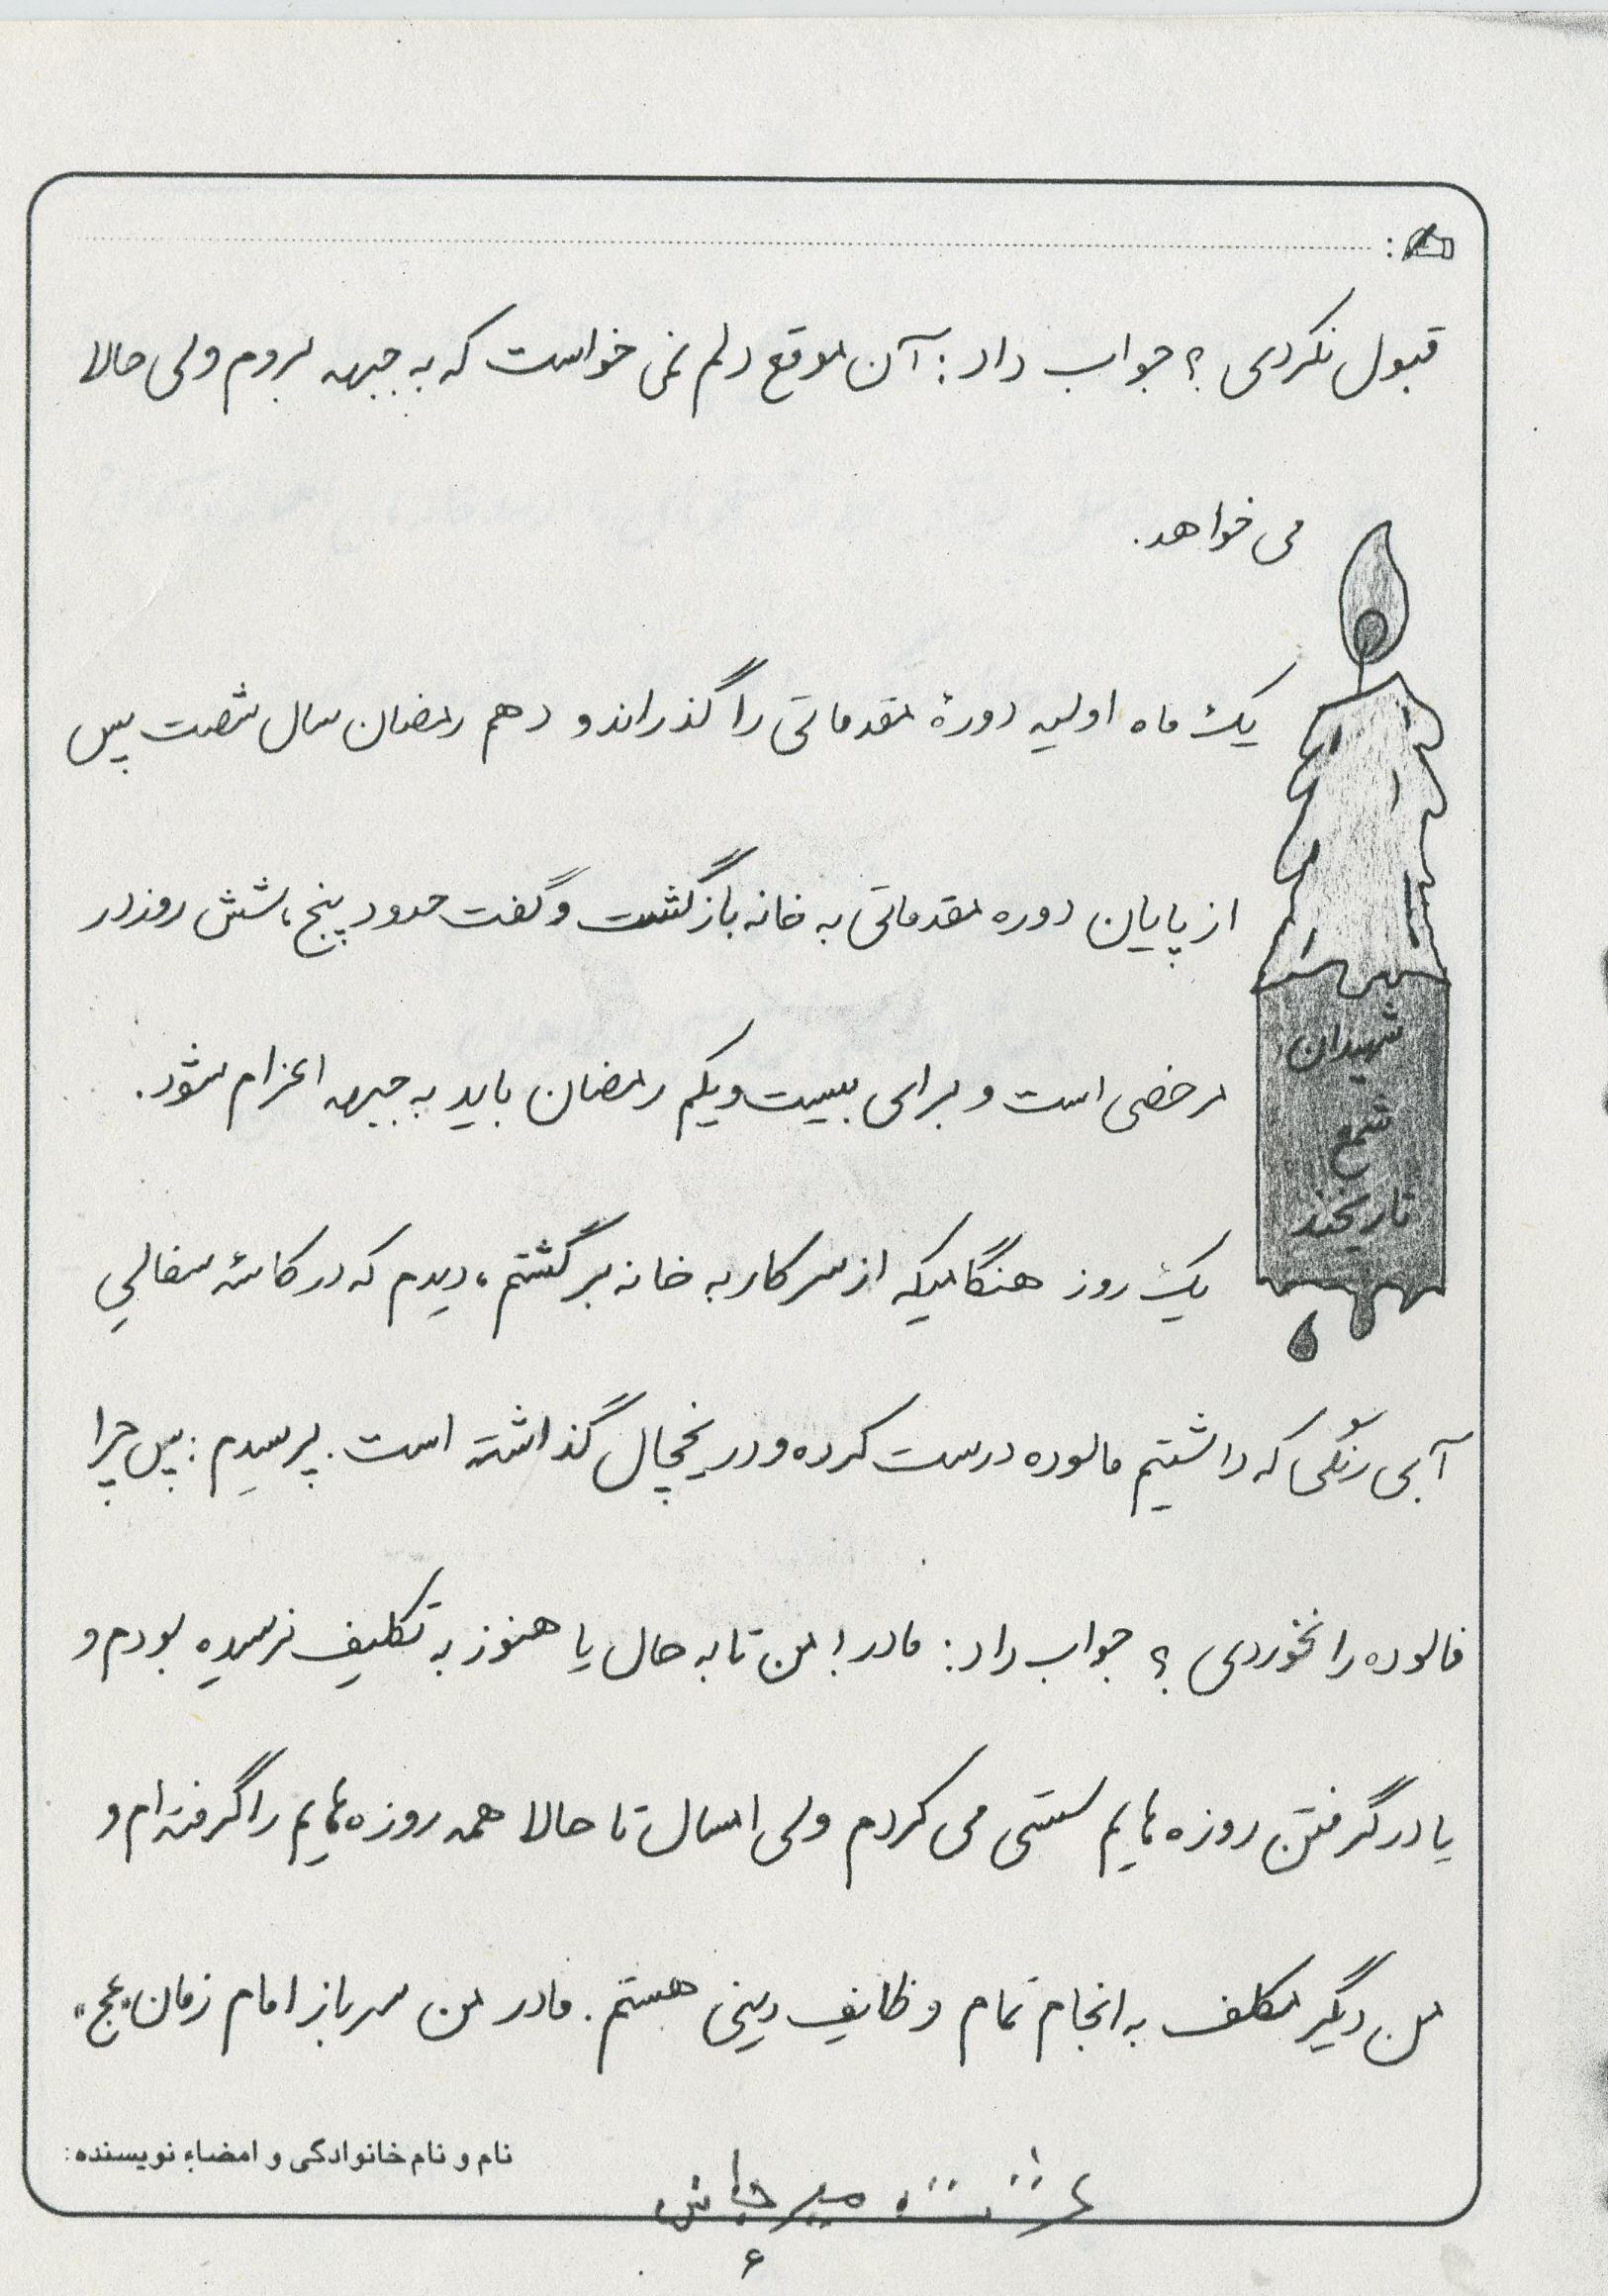 قبول نکردی؟ جواب داد: آن موقع دلم نمی خواست که به جبهه بروم ولی حالا
می خواهد.
یک ماه اولیه دورهٔ مقدماتی را گذراند و دهم رمضان سال شصت پس
از پایان دوره مقدماتی به خانه بازگشت و گفت حدود پنج، شش روز در
مرخصی است و برای بیست و یکم رمضان باید به جبهه اعزام شود.
یک روز هنگامیکه از سر کار به خانه برگشتم، دیدم که در کاسهٔ سفالیِ
آبی رنگی که داشتیم فالوده درست کرده و در یخچال گذاشته است. پرسیدم: پس چرا
فالوده را نخوردی؟ جواب داد: مادر! من تا به حال یا هنوز به تکلیف نرسیده بودم و
یا در گرفتن روزه هایم سستی می کردم ولی امسال تا حالا همه روزه هایم را گرفته ام و
من دیگر مکلف به انجام تمام وظایف دینی هستم. مادر من سرباز امام زمان "عج"
شهیدان
شمع
تاریخند
نام و نام خانوادگی و امضاء نویسنده:
۶